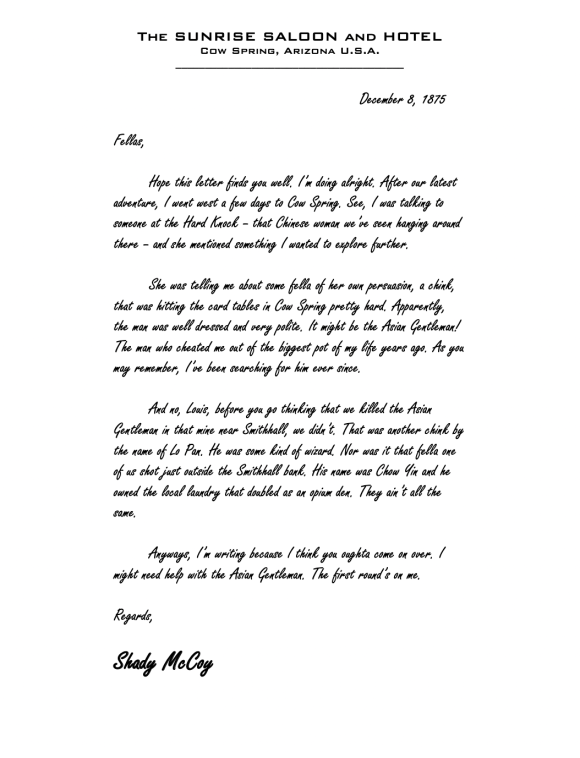 The SUNRISE SALOON and HOTEL
Cow Spring, Arizona U.S.A.
December 8, 1875
Fellas,
Hope this letter finds you well. I'm doing alright. After our latest
adventure, I went west a few days to Cow Spring. See, I was talking to
someone at the Hard Knock – that Chinese woman we've seen hanging around
there – and she mentioned something I wanted to explore further.
She was telling me about some fella of her own persuasion, a chink,
that was hitting the card tables in Cow Spring pretty hard. Apparently,
the man was well dressed and very polite. It might be the Asian Gentleman!
The man who cheated me out of the biggest pot of my life years ago. As you
may remember, I've been searching for him ever since.
And no, Louis, before you go thinking that we killed the Asian
Gentleman in that mine near Smithhall, we didn't. That was another chink by
the name of Lo Pan. He was some kind of wizard. Nor was it that fella one
of us shot just outside the Smithhall bank. His name was Chow Yin and he
owned the local laundry that doubled as an opium den. They ain't all the
same.
Anyways, I'm writing because I think you oughta come on over. I
might need help with the Asian Gentleman. The first round's on me.
Regards,
Shady McCoy